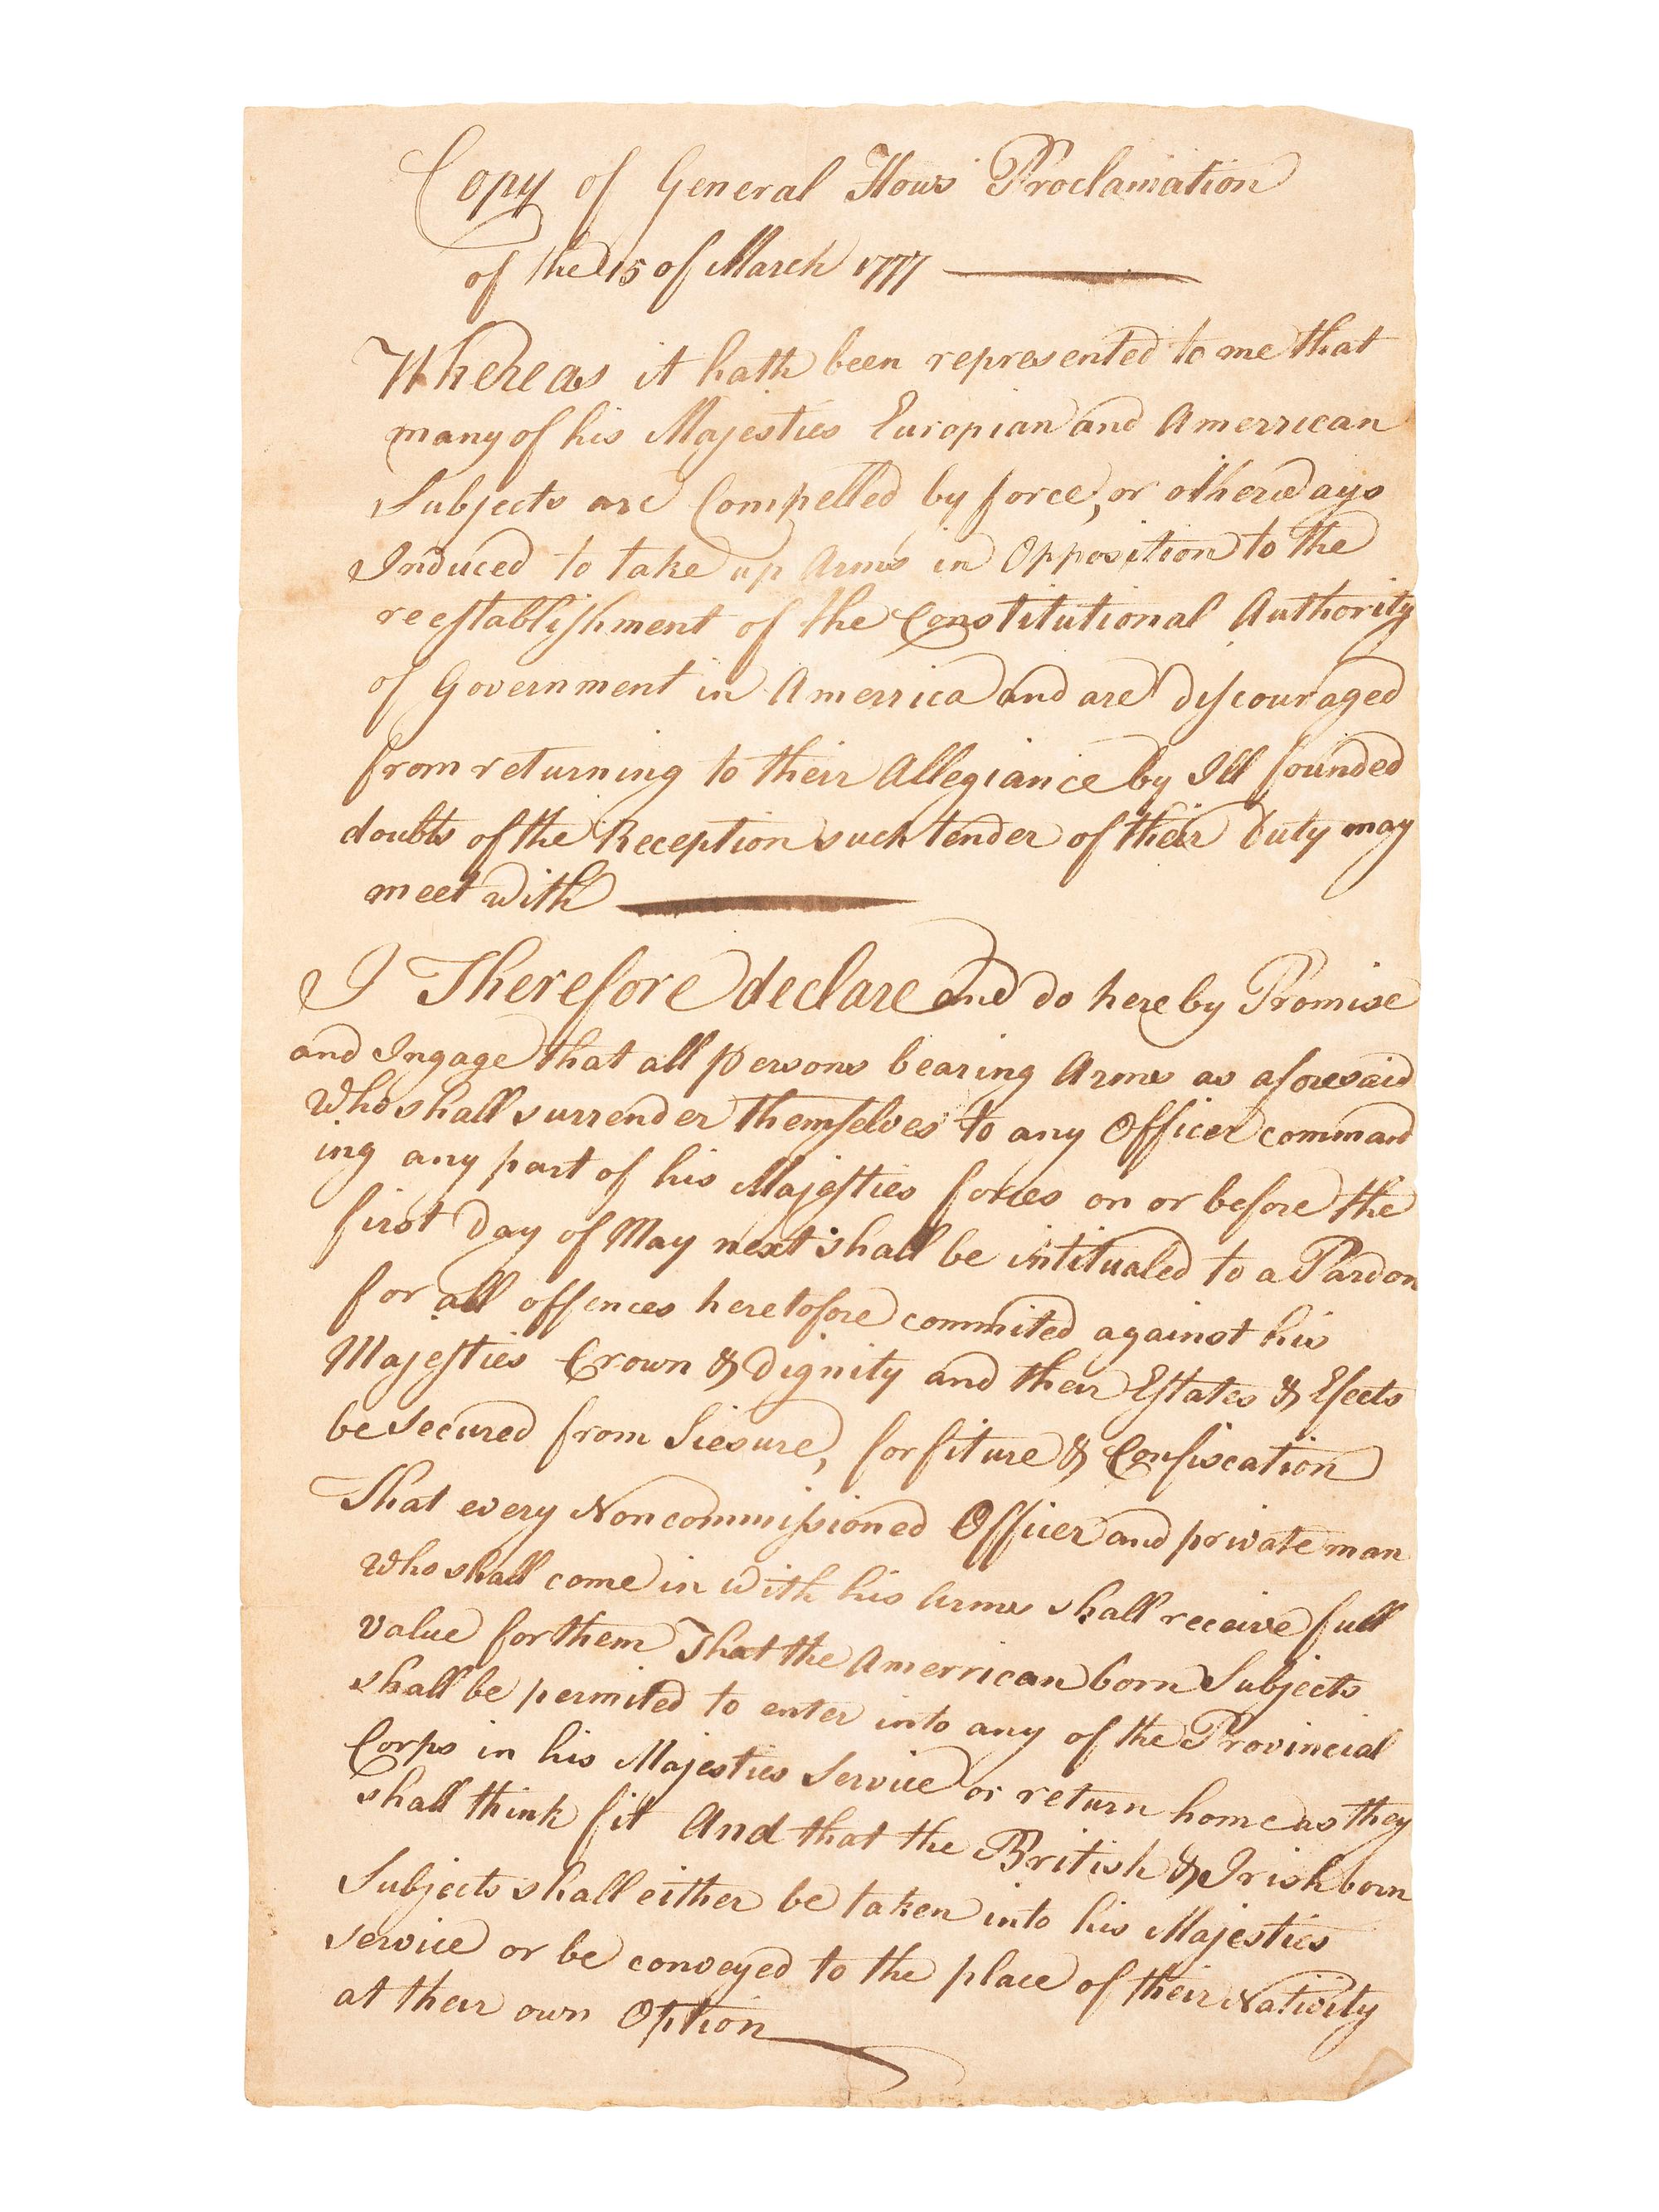 Copy of General Hows Proclamation
of the 15 of March 1777
Whereas it hath been represented to me that
many of his Majesties Europian and Amerrican
Subjects are Compelled by force, or otherways
Induced to take up Arms in Opposition to the
reestablishment of the Constitutional Authority
of Government in Amerrica and are discouraged
from returning to their Allegiance by Ill founded
doubts of the Reception such tender of their Duty may
meet with
I Therefore declare and do hereby Promise
and Ingage that all persons bearing Arms as aforesaid
Who shall surrender themselves to any Officer command
ing any part of his Majesties forces on or before the
first Day of May next shall be intitualed to a Pardon
for all offences heretofore commited against his
Majesties Crown & Dignity and their Estates & Efects
be Secured from Siesure, forfiture & Confiscation
That every Noncommissioned Officer and private man
Who shall come in With his Arms shall receive full
value for them That the Amerrican born Subjects
shall be permited to enter into any of the Provincial
Corps in his Majesties Service or return home as they
shall think fit And that the British & Irish born
Subjects shall either be taken into his Majesties
service or be conveyed to the place of their Nativity
at their own Option